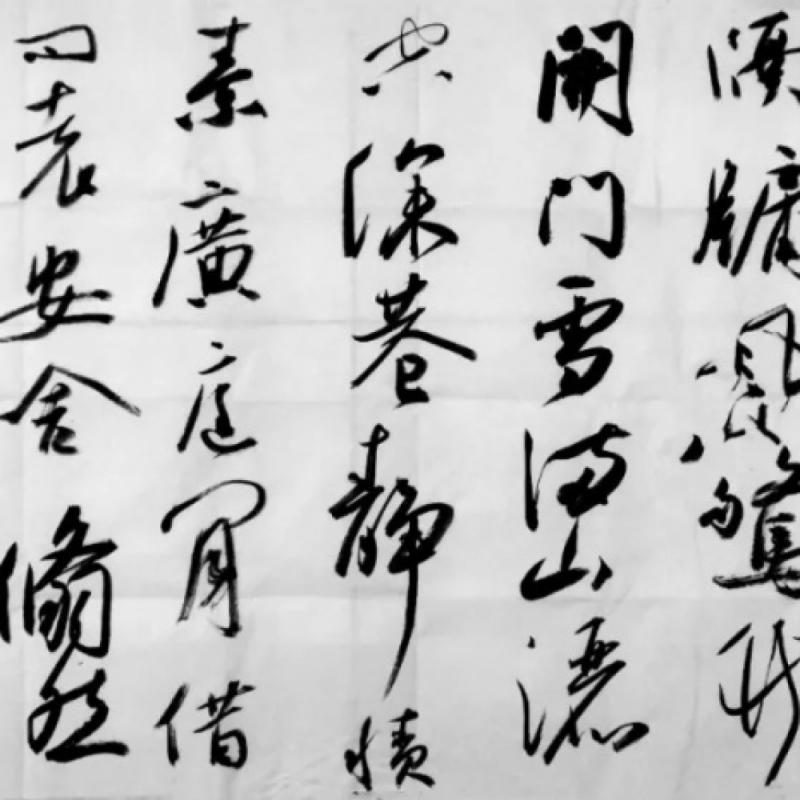 隔牖風驚竹
開門雪滿山灑
空深巷靜積
素廣庭閒借
問袁安舍翛然